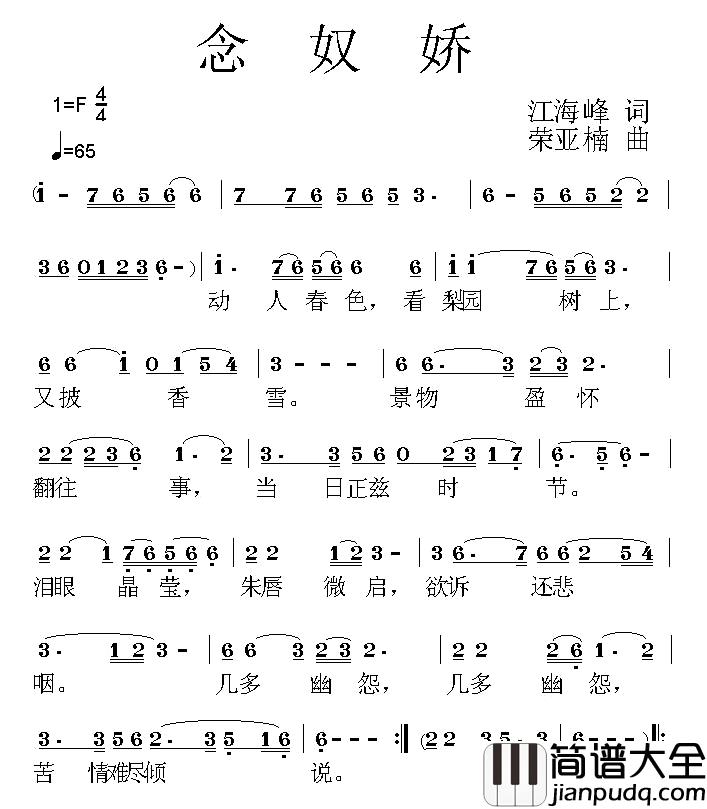 念奴娇
1=F 4/4
♩=65
江海峰 词
荣亚楠 曲
(1 - 7 6 5 6 6 | 7 7 6 5 6 5 3. | 6 - 5 6 5 2 2 |
3 6 0 1 2 3 6 - ) | 1. 7 6 5 6 6 6 | 1 1 7 6 5 3. |
动 人 春 色, 看 梨园 树 上,
6 6 1 0 1 5 4 | 3 - - - | 6 6. 3 2 3 2. |
又 披 香 雪。 景物 盈 怀
2 2 2 3 6 1. 2 | 3. 3 5 6 0 2 3 1 7 | 6. 5 6 - |
翻往 事, 当 日正兹 时 节。
2 2 1 7 6 5 6 | 2 2 1 2 3 - | 3 6. 7 6 6 2 5 4 |
泪眼 晶 莹, 朱唇 微 启, 欲诉 还悲
3. 1 2 3 - | 6 6 3 2 3 2. | 2 2 2 6 1. 2 |
咽。 几多 幽 怨, 几多 幽 怨,
3. 3 5 6 2. 3 5 1 6 | 6 - - - :‖ (2 2 3 5
6 - ):‖
苦 情难尽倾 说。
简谱大全
jianpudq.com